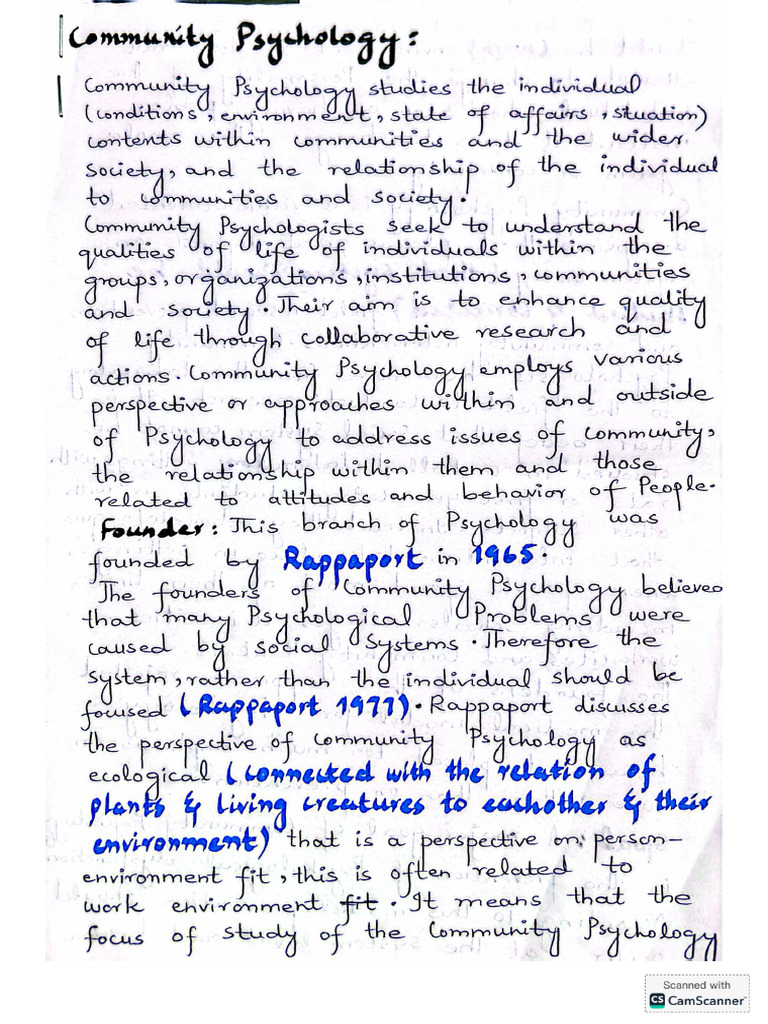 Community Psychology:
Community Psychology studies the individual
(conditions, environment, state of affairs, situation)
contents within communities and the wider
society, and the relationship of the individual
to communities and society.
Community Psychologists seek to understand the
qualities of life of individuals within the
groups, organizations, institutions, communities
and society. Their aim is to enhance quality
of life through collaborative research and
actions. Community Psychology employs various
perspective or approaches within and outside
of Psychology to address issues of community,
the relationship within them and those
related to attitudes and behavior of People.
Founder: This branch of Psychology was
founded by Rappaport in 1965.
The founders of Community Psychology believed
that many Psychological Problems were
caused by social Systems. Therefore the
system, rather than the individual should be
focused (Rappaport 1977). Rappaport discusses
the perspective of community Psychology as
ecological (connected with the relation of
plants & living creatures to eachother & their
environment) that is a perspective on: person-
environment fit, this is often related to
work environment fit. It means that the
focus of study of the Community Psychology
Scanned with
CS CamScanner